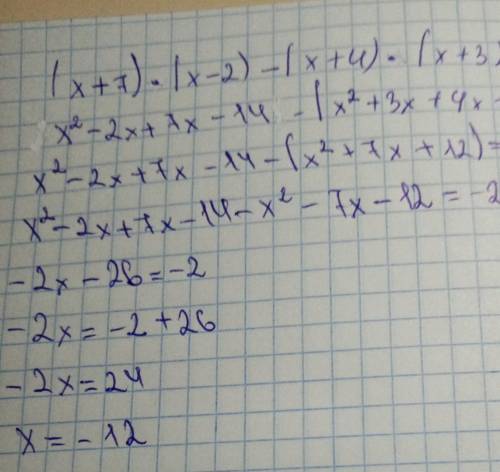 (x+7)·(x-2)-(x+4)·(x+3
x²-2x+7x-14-(x²+3x+4x
x²-2x+7x-14-(x²+7x+12)=
x²-2x+7x-14-x²-7x-12=-2
-2x-26=-2
-2x=-2+26
-2x=24
x=-12